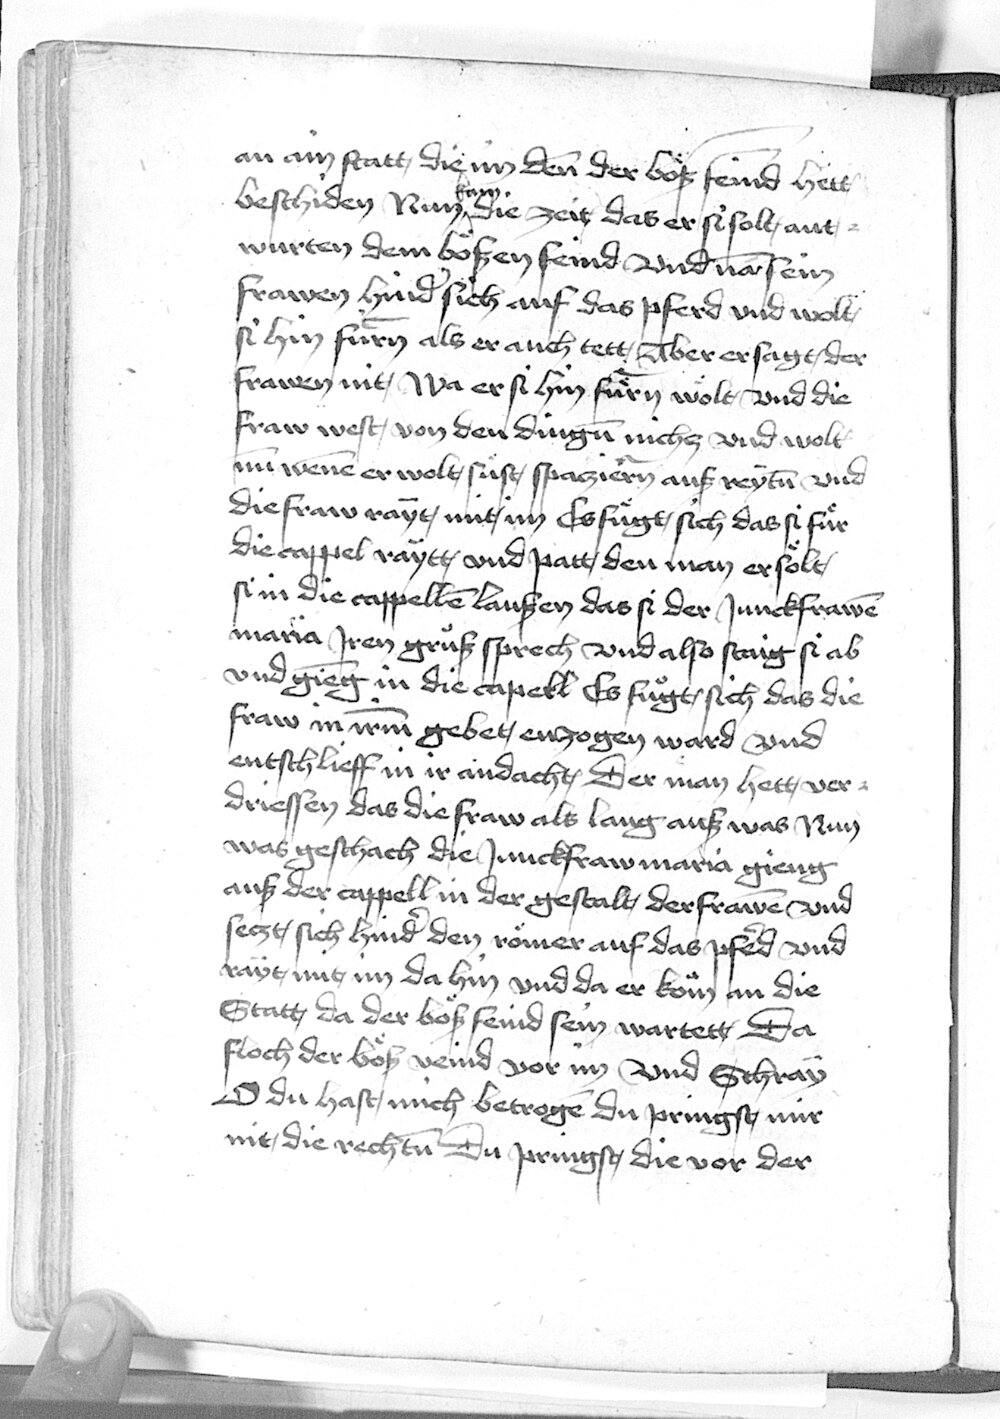 an ain statt die im den̄ der böß feind hett
beschiden Nun kam die zeit das er si solt ant-
wurten dem bößen feind vnd nam sein
frawen hinder sich auf das pferd vnd wolt
si hin fürn̄ als er auch tett Aber er sagt der
frawen nit wa er si hin fürn̄ wölt vnd die
fraw west von den dingn̄ nichcz vnd wolt
nū wēne er wolt süst spaziern̄ auß reytn̄ vnd
die fraw raÿt mit im Es fügt sich das si für
die cappel raÿtt vnd patt den man er sölt
si in die cappellē laußen das si der Junckfrawē
maria Jren gruß sprech vnd also staig si ab
vnd gieng in die capell Es fügt sich das die
fraw in irm̄ gebet enzogen ward vnd
entschlieff in ir andacht Der man hett ver-
driessen das die fraw als lang auß was Nun
was geschach die Junckfraw maria gieng
auß der cappell in der gestalt der frawē vnd
seczt sich hinder den römer auf das pferd vnd
raÿt mit im da hin vnd da er kom̄ an die
Statt da der böß feind sein wartett Da
floch der böß veind vor im vnd Schraÿ
O du hast mich betrogē du pringst mir
nit die rechtn̄ Du pringst die vor der